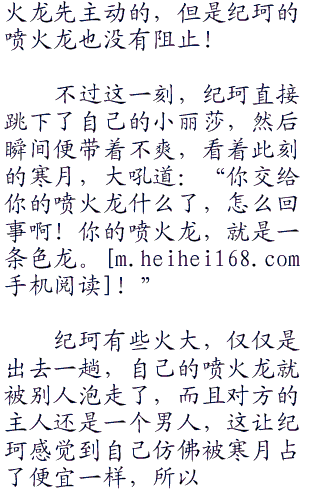 火龙先主动的，但是纪珂的
喷火龙也没有阻止！
不过这一刻，纪珂直接
跳下了自己的小丽莎，然后
瞬间便带着不爽，看着此刻
的寒月，大吼道：“你交给
你的喷火龙什么了，怎么回
事啊！你的喷火龙，就是一
条色龙。[m.heihei168.com
手机阅读]！”
纪珂有些火大，仅仅是
出去一趟，自己的喷火龙就
被别人泡走了，而且对方的
主人还是一个男人，这让纪
珂感觉到自己仿佛被寒月占
了便宜一样，所以